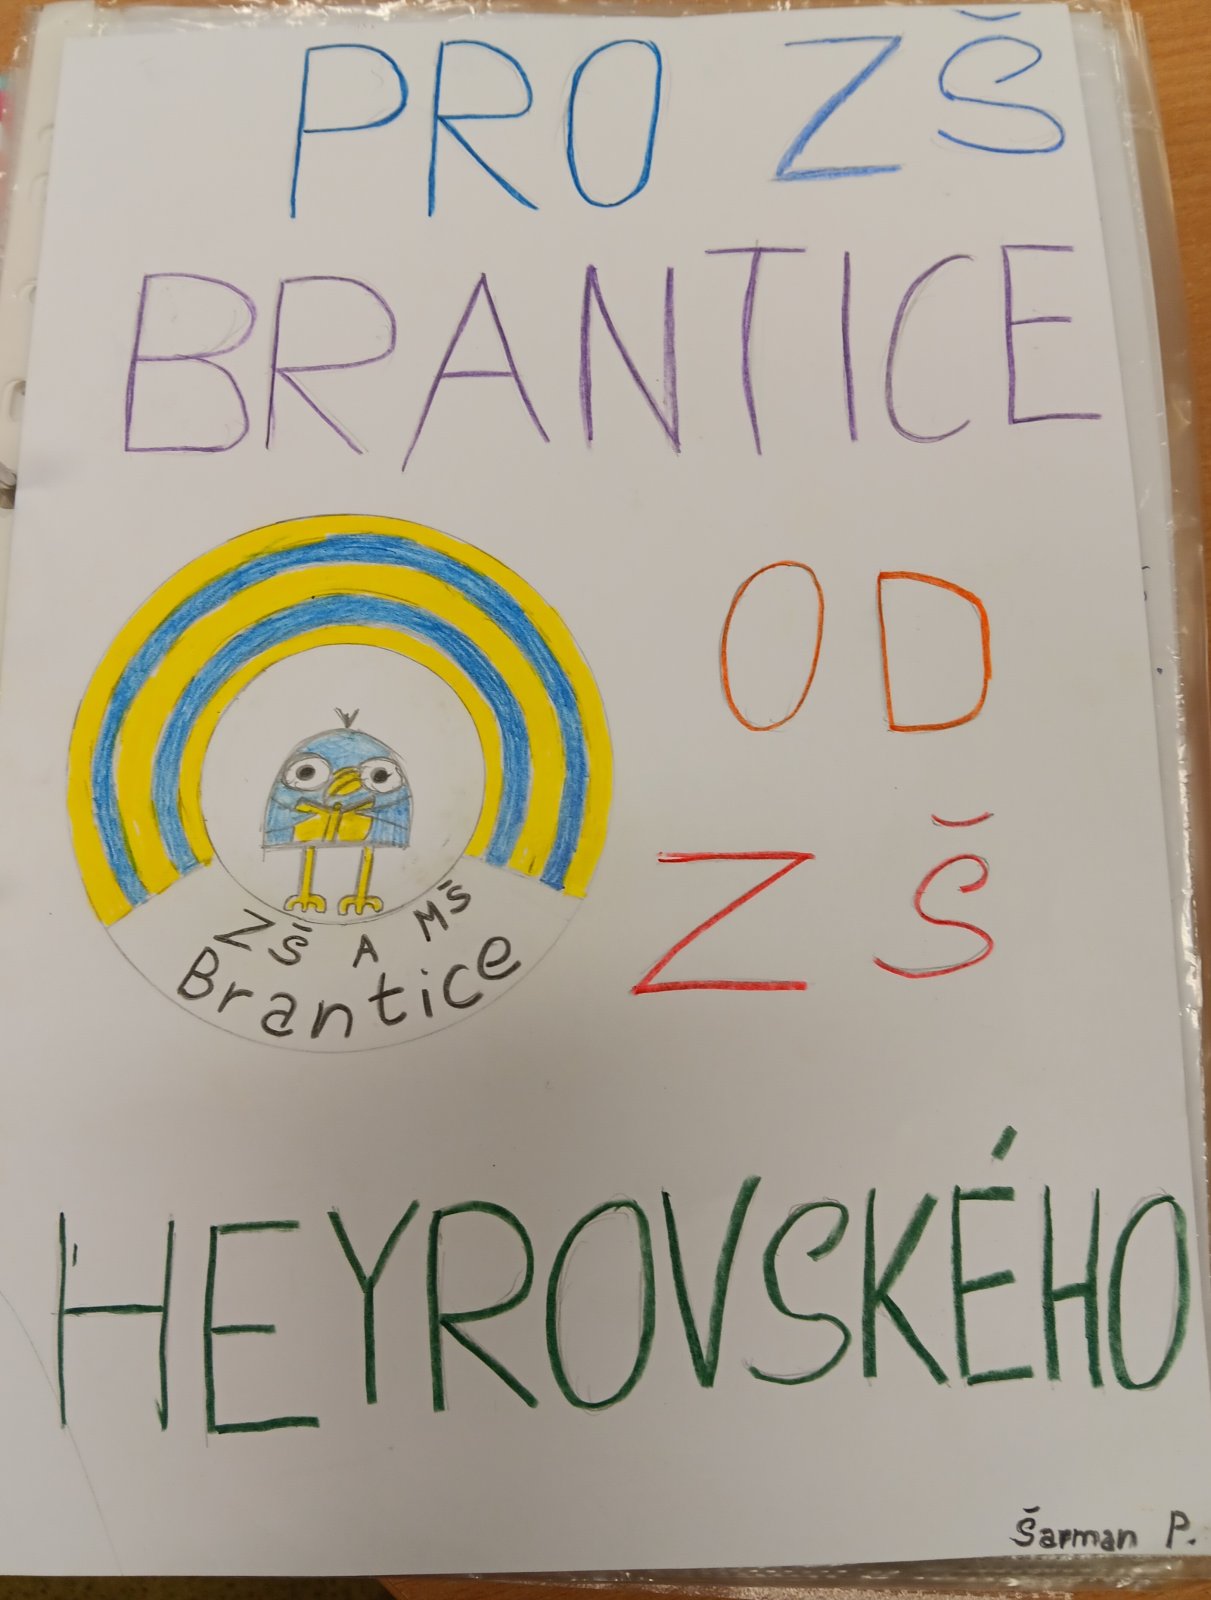 PRO ZŠ
BRANTICE
OD
ZŠ
ZŠ A MŠ
Brantice
HEYROVSKÉHO
Šarman P.